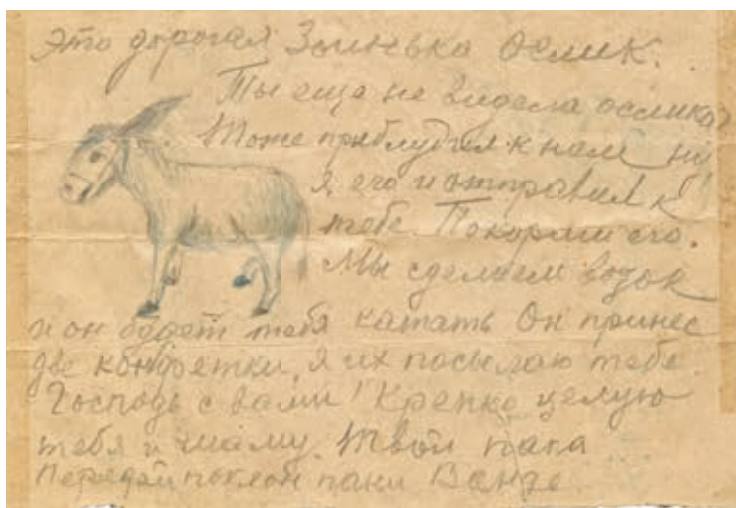 Это дорогая Зоинька Ослик.
Ты еще не видела ослика?
Тоже приблудился к нам, ну
я его и отправил к
тебе. Покорми его.
Мы сделаем возок
и он будет тебя катать Он принес
две конфетки, я их посылаю тебе.
Господь с вами! Крепко целую
тебя и маму. Твой папа
Передай поклон пани Ванде.